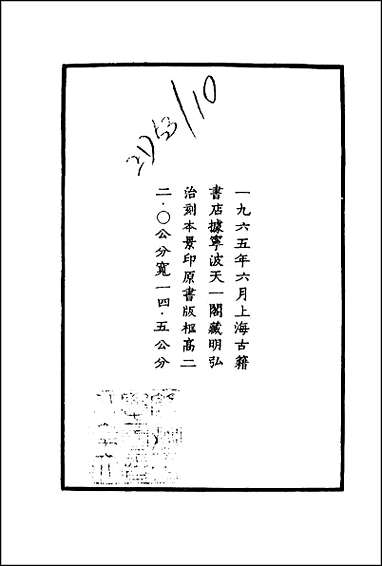 一九六五年六月上海古籍
書店據寧波天一閣藏明弘
治刻本景印原書版框高二
二·〇公分寬一四·五公分